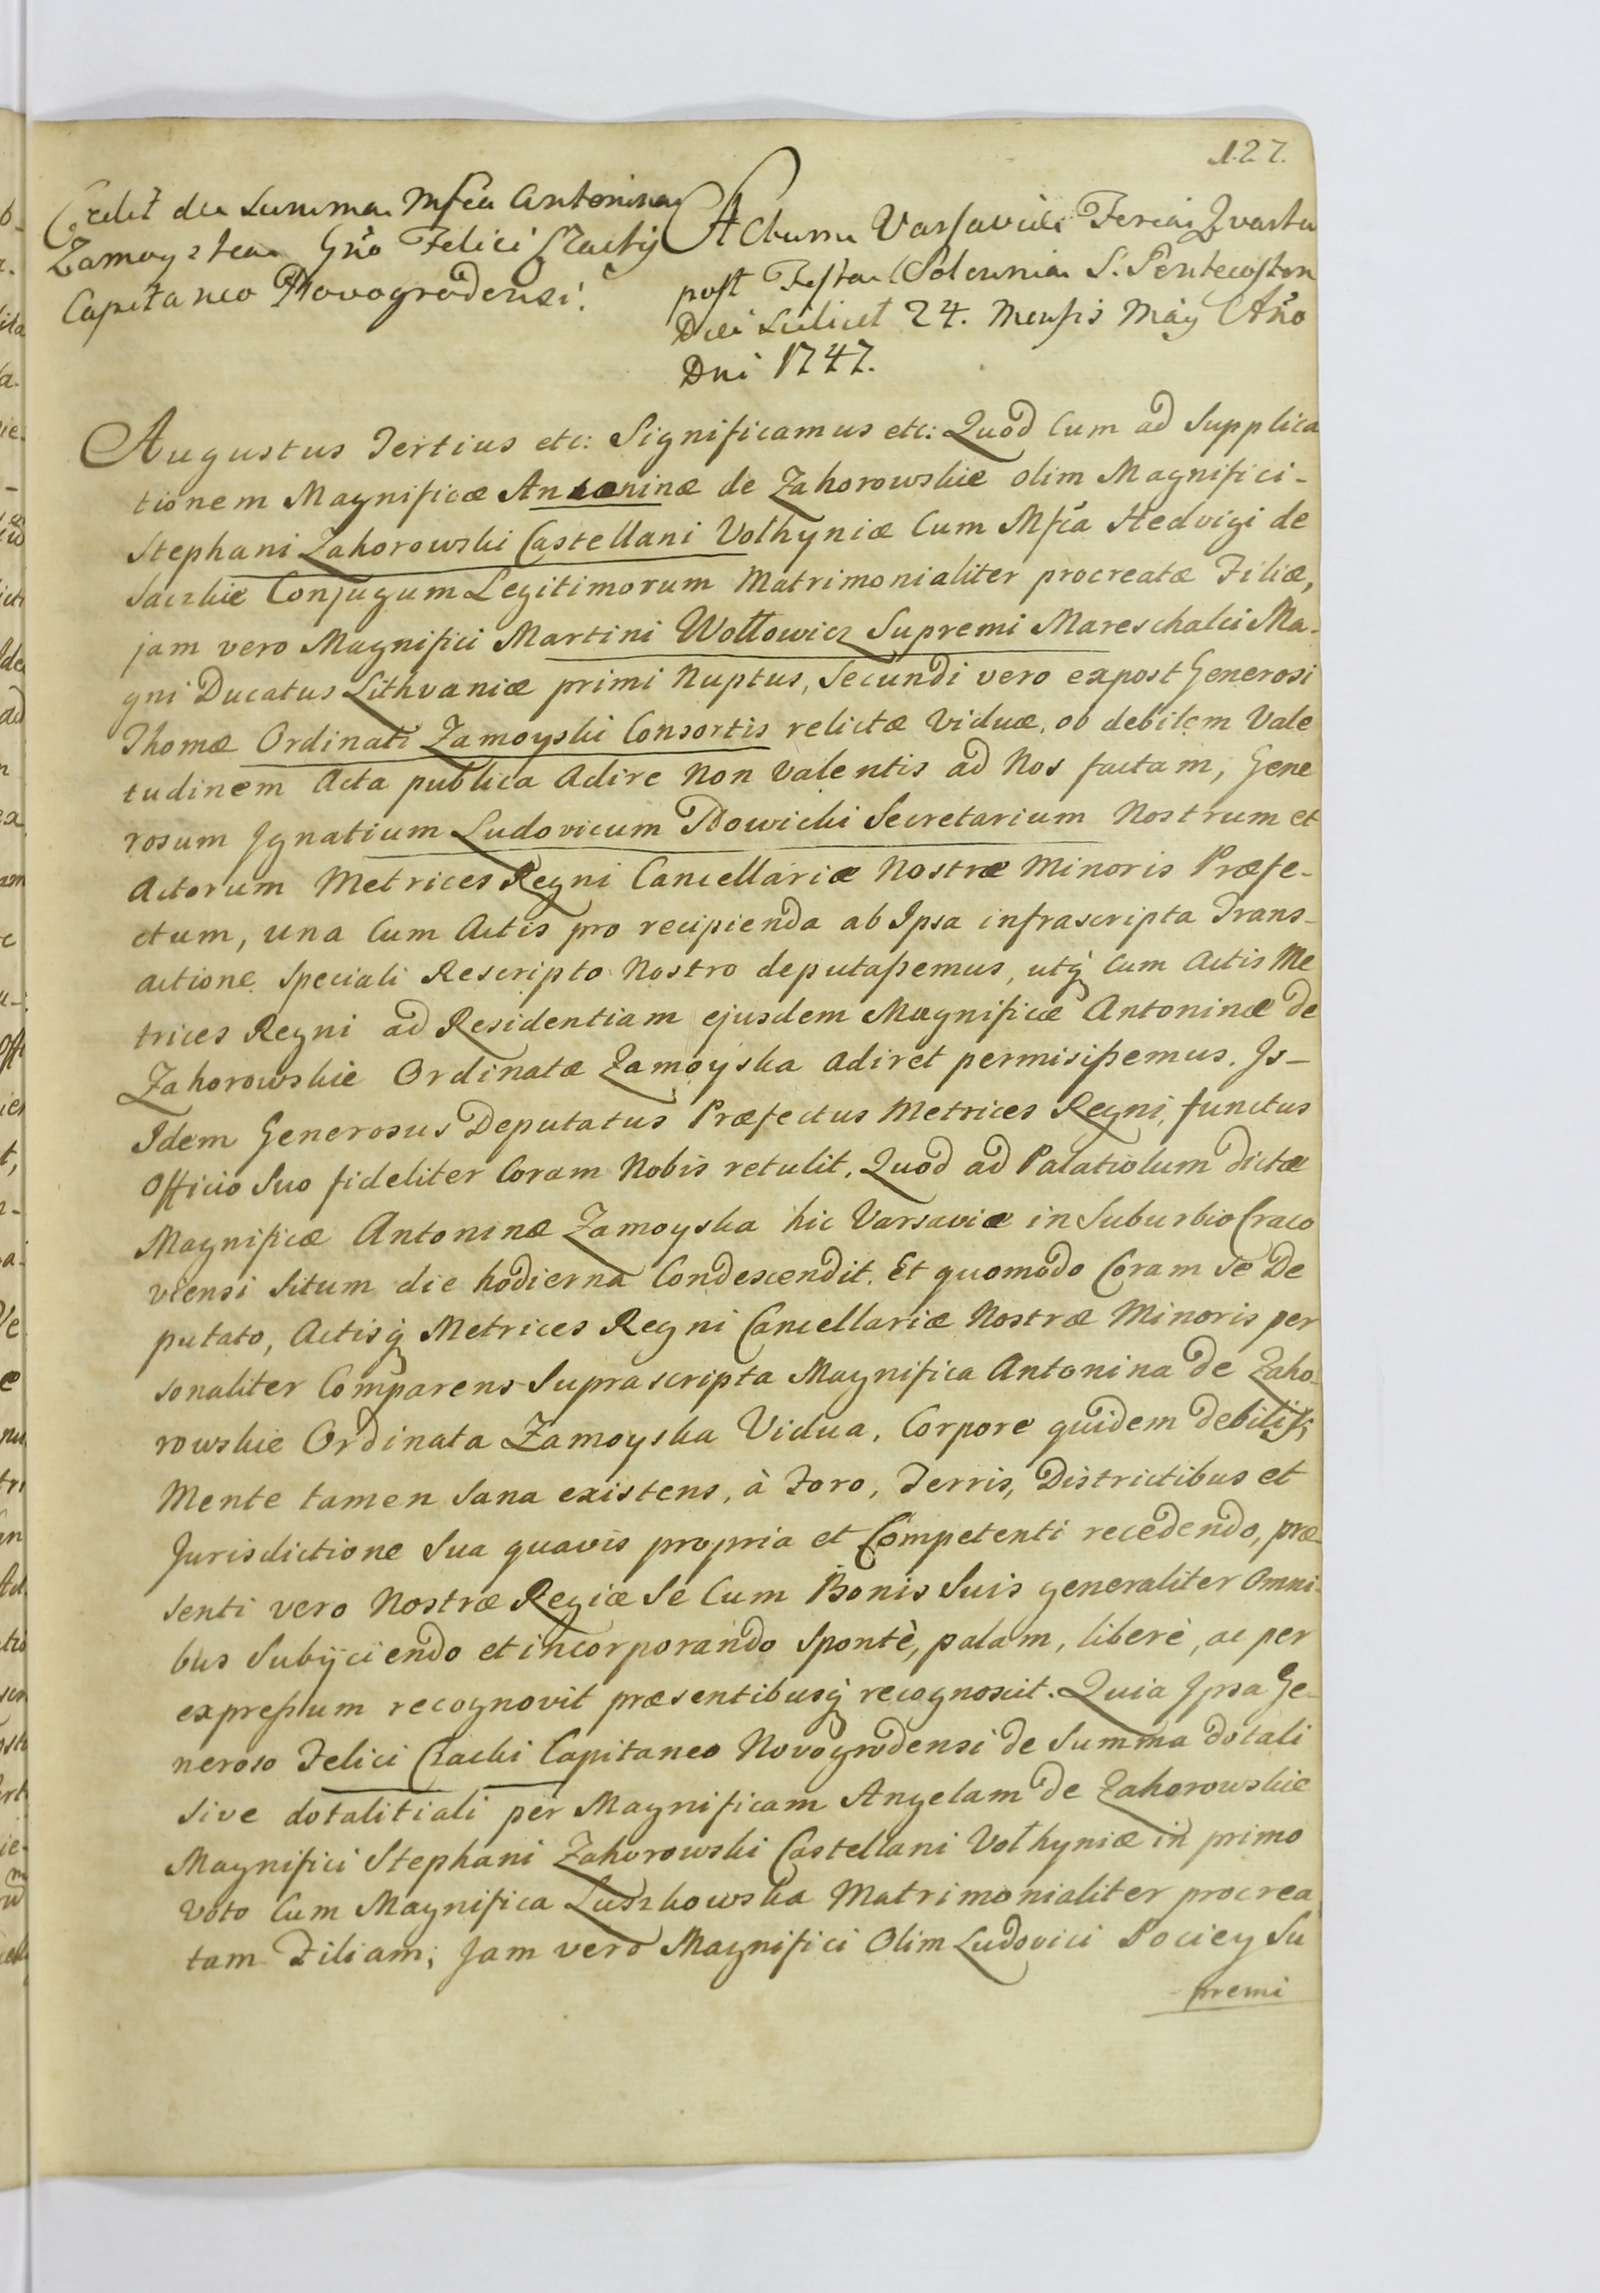 127.
Cedit de Summa Mfca Antonina
Zamoyska Gño Felici Czacky
Capitaneo Novogrodensi.
Actum Varsaviæ Feria Qvarta
post Festa Solennia S. Pentecosten
Die scilicet 24. Mensis Maÿ Año
Dni 1747.
Augustus Tertius etc: Significamus etc: Quod Cum ad Supplica
tionem Magnificæ Antoninæ de Zahorowskie olim Magnifici-
Stephani Zahorowski Castellani Volhyniæ Cum Mfca Hedvigi de
Conjugum Legitimorum Matrimonialiter procreatæ Filiæ,
jam vero Magnifici Martini Wołłowicz Supremi Mareschalci Ma-
gni Ducatus Lithvaniæ primi Nuptus, Secundi vero expost Generosi
Thomæ Ordinati Zamoyski Consortis relictæ Viduæ, ob debilem Vale
tudinem Acta publica Adire Non Valentis ad Nos factam, Gene
rosum Ignatium Ludovicum Nowicki Secretarium Nostrum et
Actorum Metrices Regni Cancellariæ Nostræ Minoris Præfe-
ctum, una Cum Actis pro recipienda ab Ipsa infrascripta Trans-
actione Speciali Rescripto Nostro deputaßemus, utq; Cum Actis Me
trices Regni ad Residentiam ejusdem Magnificæ Antoninæ de
Zahorowskie Ordinatæ Zamoyska adiret permisißemus. Is-
Idem Generosus Deputatus Præfectus Metrices Regni, functus
Officio Suo fideliter Coram Nobis retulit, Quod ad Palatiolum dictæ
Magnificæ Antoninæ Zamoyska hic Varsaviæ in Suburbio Craco
viensi Situm die hodierna Condescendit. Et quomodo Coram Se De
putato, Actisq; Metrices Regni Cancellariæ Nostræ Minoris per
sonaliter Comparens Suprascripta Magnifica Antonina de Zaho-
rowskie Ordinata Zamoyska Vidua, Corpore quidem debilis,
Mente tamen Sana existens, à Foro, Terris, Districtibus et
Jurisdictione Sua quavis propria et Competenti recedendo, præ-
senti vero Nostræ Regiæ Se Cum Bonis Suis generaliter Omni-
bus Subÿciendo et incorporando Spontè, palam, liberè, ac per
expreßum recognovit præsentibusq; recognoscit. Quia Ipsa Ge-
neroso Felici Czacki Capitaneo Novogrodensi de Summa dotali
Sive dotalitiali per Magnificam Angelam de Zahorowskie
Magnifici Stephani Zahorowski Castellani Volhyniæ in primo
Voto Cum Magnifica Matrimonialiter procrea
tam Filiam, Jam vero Magnifici Olim Ludovici Pociey Su
premi